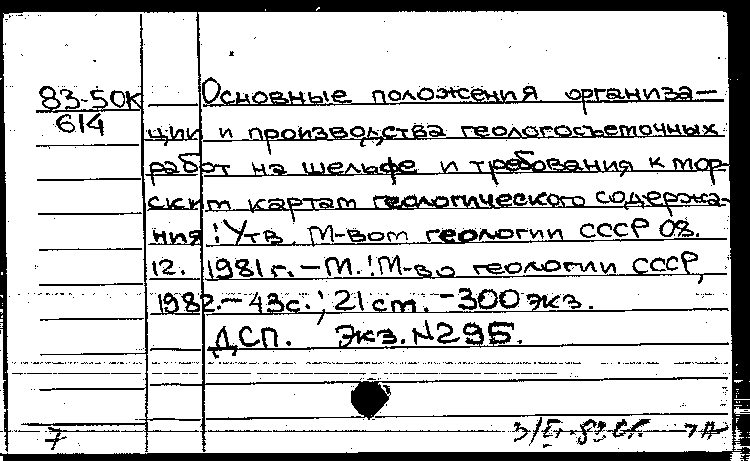 83-50К
614
Основные положения организа-
ции и производства геологосъемочных
работ на шельфе и требования к мор-
ским картам геологического содержа-
ния : Утв. М-вом геологии СССР 08.
12. 1981 г. - М. : М-во геологии СССР,
1982. - 43 с. ; 21 см. - 300 экз.
ДСП. Экз. N295.
7